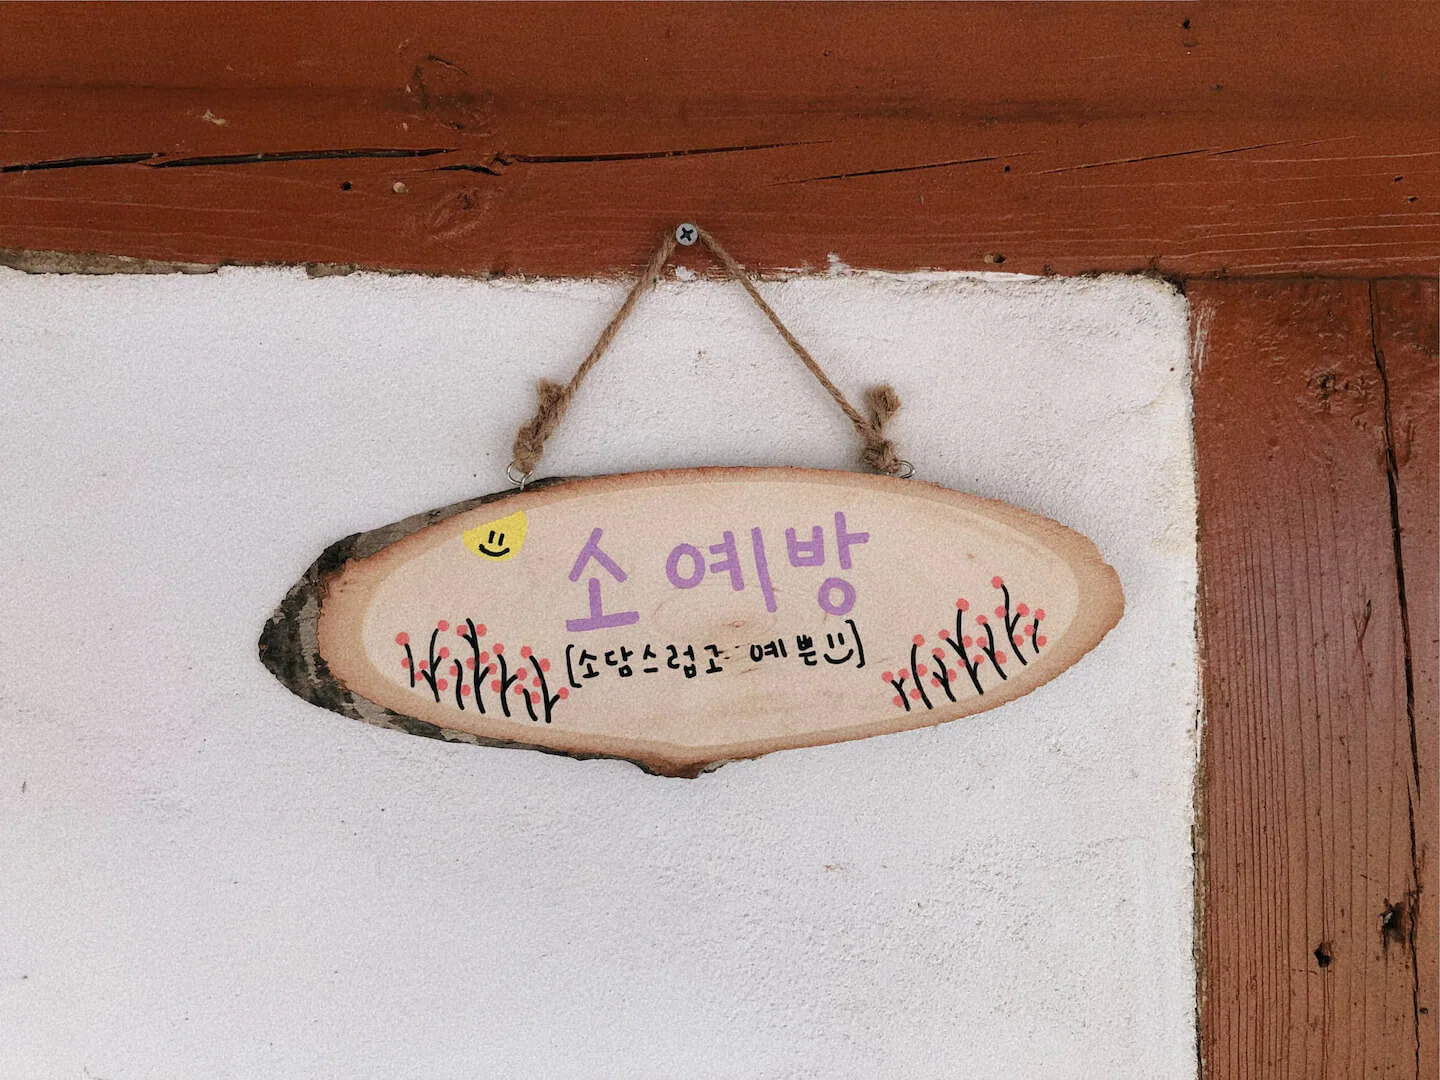 소예방
[소담스럽고 예쁜]